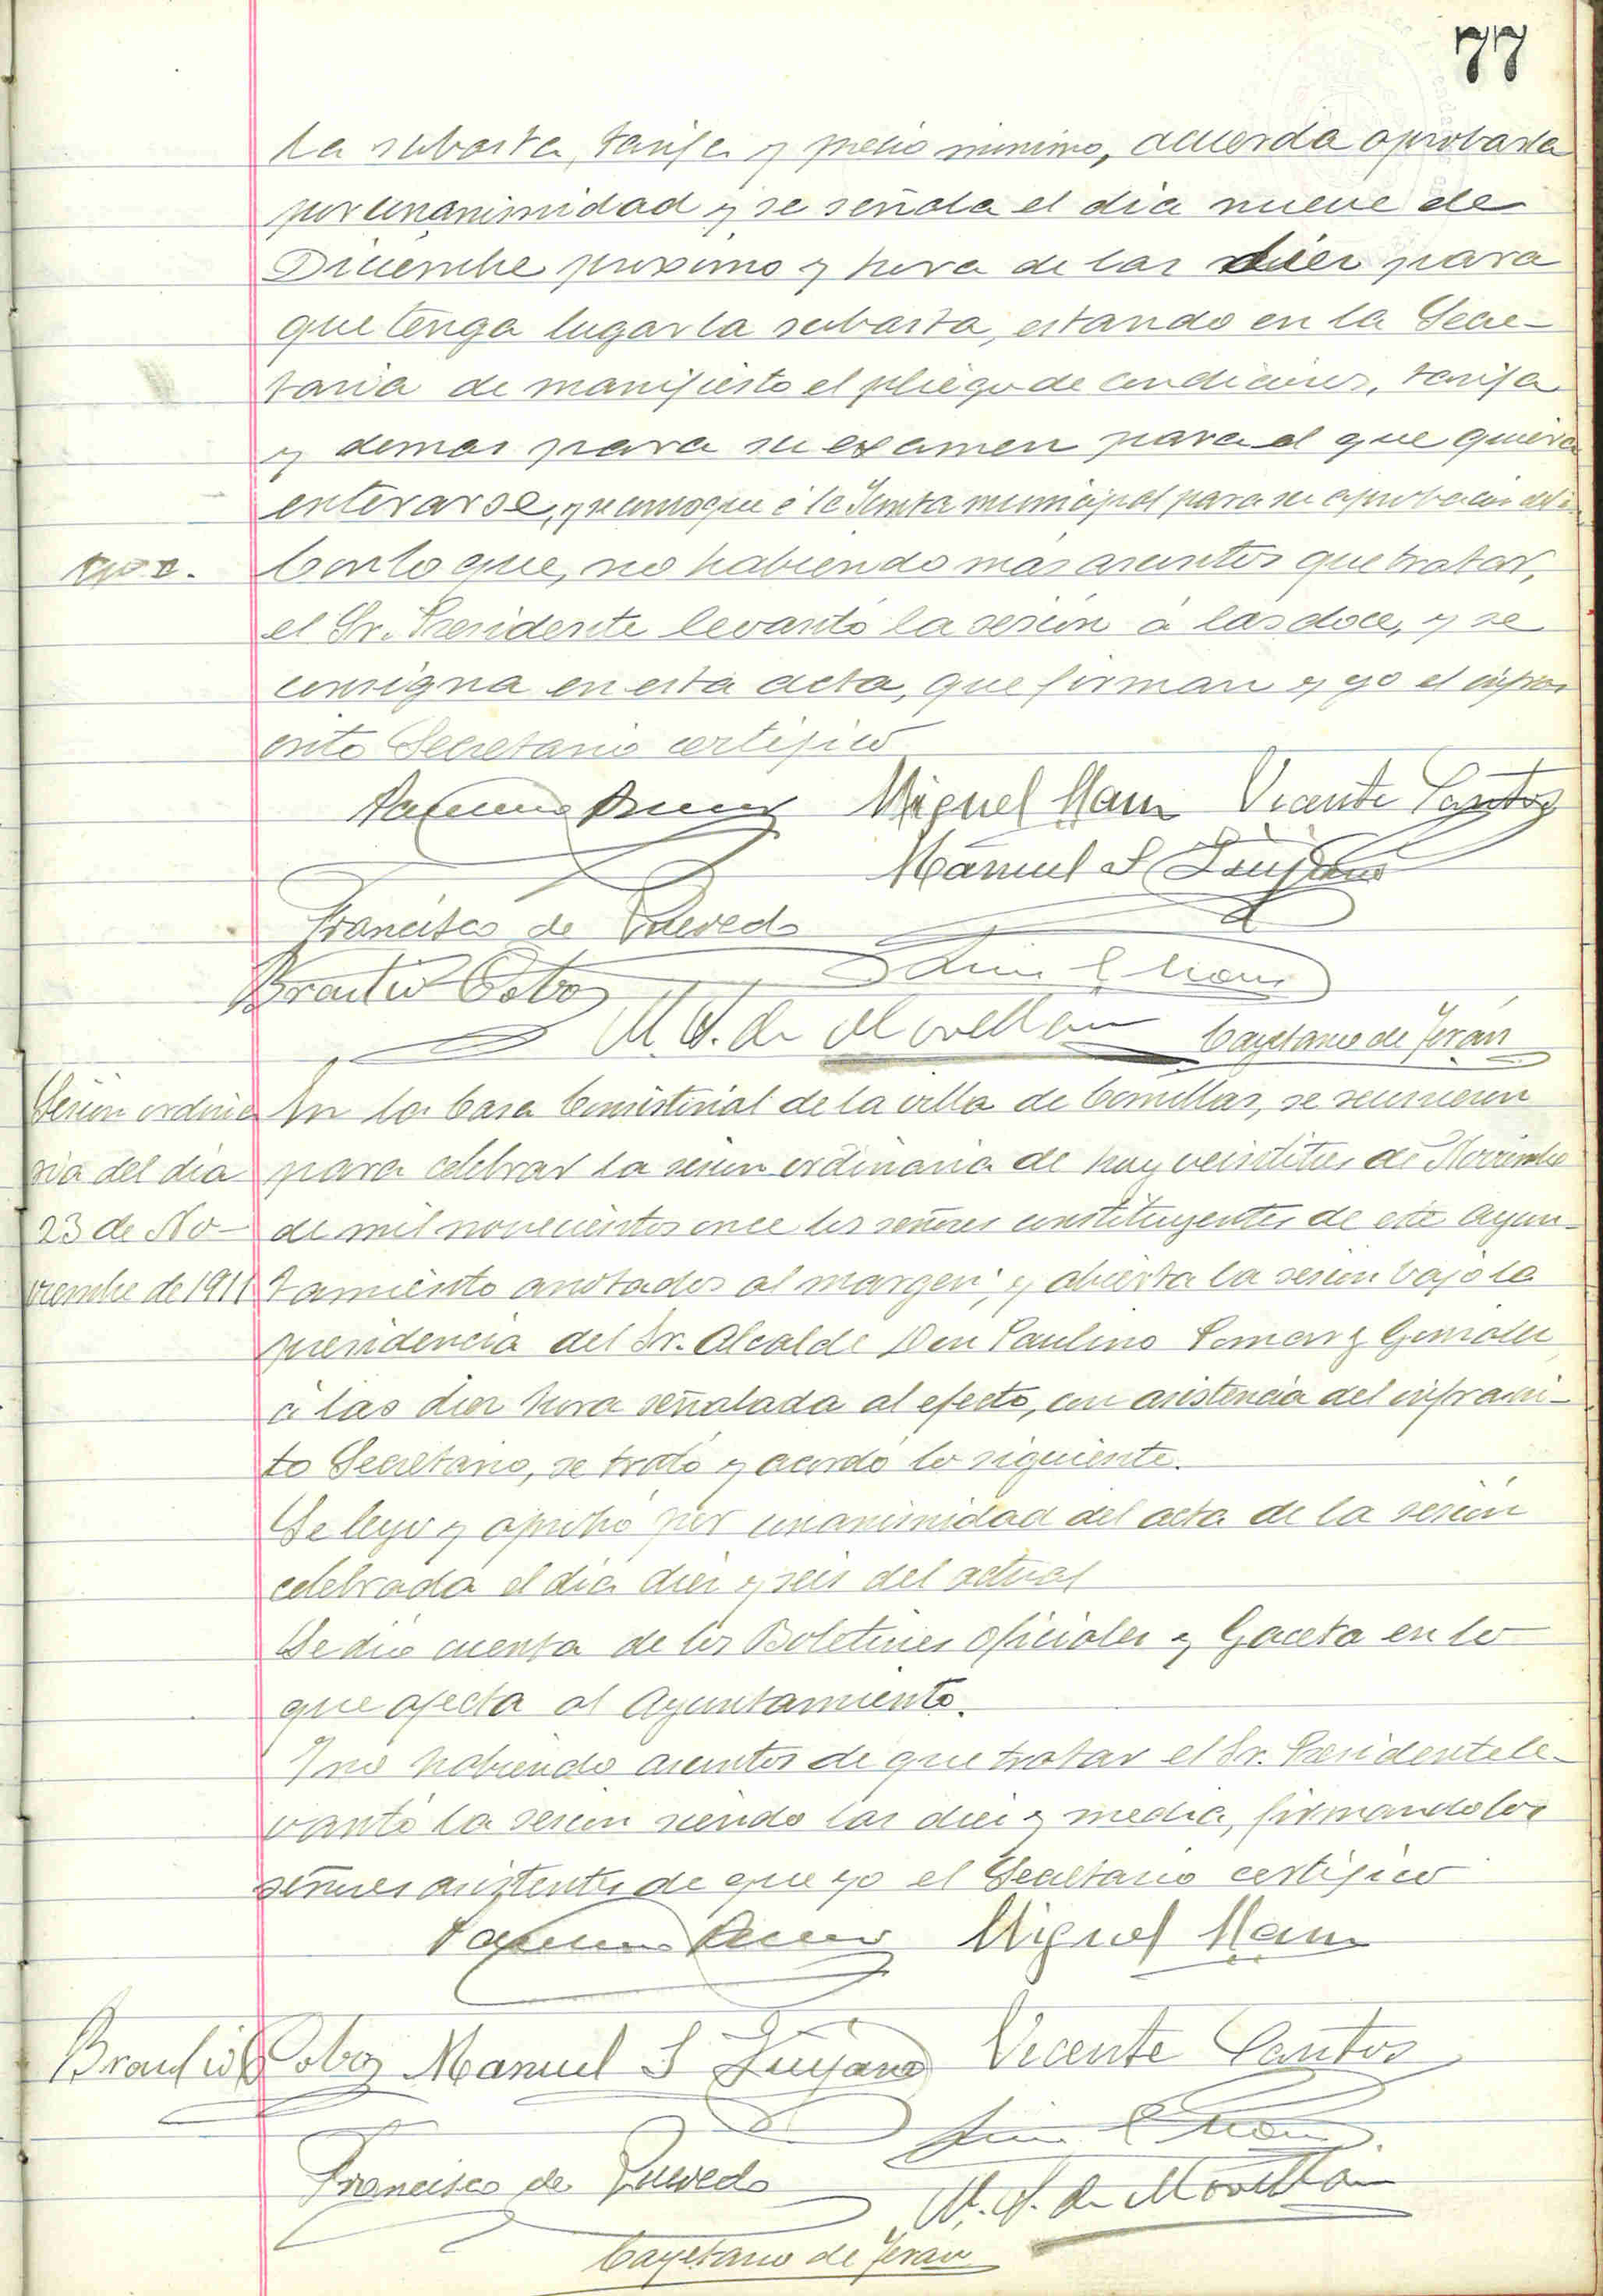 77
la subasta, tarifa y precio minimo, acuerda aprobarla
por unanimidad y se señala el dia nueve de
Diciembre proximo y hora de las diez para
que tenga lugar la subasta, estando en la Secre-
taria de manifiesto el pliego de condiciones, tarifa
y demas para su examen para el que quiera
enterarse, y se convoque á la Junta municipal para su aprobacion
Con lo que, no habiendo mas asuntos que tratar,
el Sr. Presidente levantó la sesion á las doce, y se
consigna en esta acta, que firman y yo el infras
crito Secretario certifico
Miguel Vicente Santos
Manuel S
Francisco de Quevedo
Braulio Cobo
M. S. de Movellan Cayetano de Terán
Sesion ordina
ria del dia
23 de No-
viembre de 1911
En la Casa Consistorial de la villa de Comillas, se reunieron
para celebrar la sesion ordinaria de hoy veintitres de Noviembre
de mil novecientos once los señores constituyentes de este Ayun-
tamiento anotados al margen, y abierta la sesion bajo la
presidencia del Sr. Alcalde Don Paulino
á las diez hora señalada al efecto, con asistencia del infrascri-
to Secretario, se trató y acordó lo siguiente.
Se leyó y aprobó por unanimidad del acta de la sesion
celebrada el dia diez y seis del actual
Se dió cuenta de los Boletines oficiales y Gaceta en lo
que afecta al Ayuntamiento.
Y no habiendo asuntos de que tratar el Sr. Presidente le-
vantó la sesion siendo las diez y media, firmando los
señores asistentes de que yo el Secretario certifico
Miguel
Braulio Cobo Manuel S Vicente Santos
Francisco de Quevedo
M. S. de Movellan
Cayetano de Teran